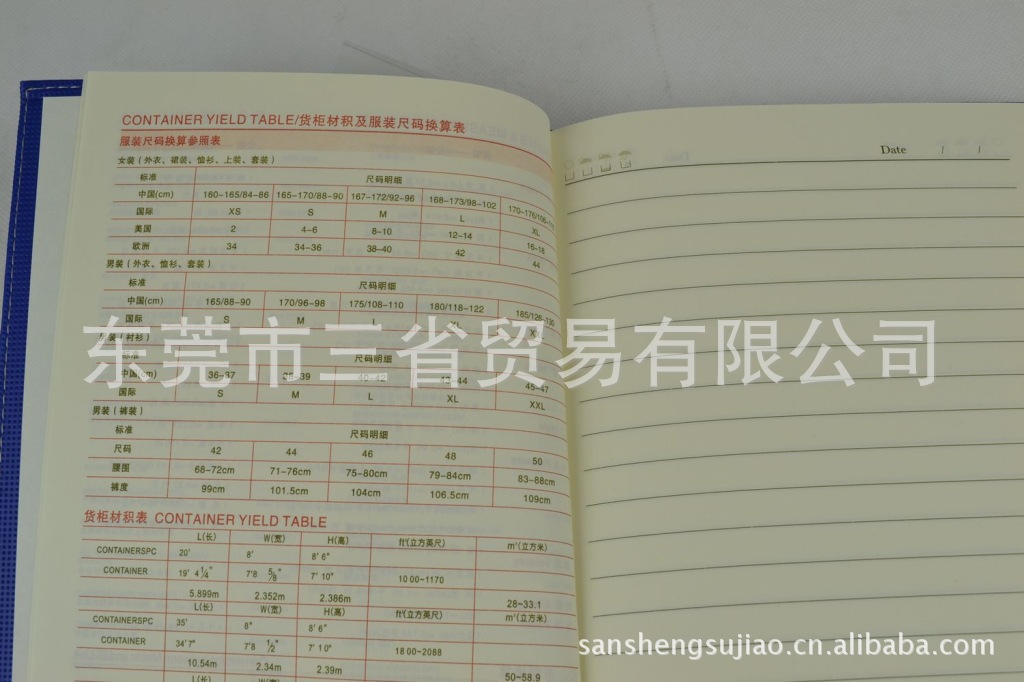 CONTAINER YIELD TABLE/货柜材积及服装尺码换算表
服装尺码换算参照表
女装（外衣、裙装、恤衫、上装、套装）
标准 尺码明细
中国(cm) 160-165/84-86 165-170/88-90 167-172/92-96 168-173/98-102
国际 XS S M L XL
美国 2 4-6 8-10 12-14 16-18
欧洲 34 34-36 38-40 42 44
男装（外衣、恤衫、套装）
标准 尺码明细
中国(cm) 165/88-90 170/96-98 175/108-110 180/118-122
国际 S M L XL
男装（衬衫）
标准 尺码明细
中国(cm) 36-37 38-39 40-42 43-44 45-47
国际 S M L XL XXL
男装（裤装）
标准 尺码明细
尺码 42 44 46 48 50
腰围 68-72cm 71-76cm 75-80cm 79-84cm 83-88cm
裤度 99cm 101.5cm 104cm 106.5cm 109cm
货柜材积表 CONTAINER YIELD TABLE
L(长) W(宽) H(高) ft³(立方英尺) m³(立方米)
CONTAINERSPC 20' 8' 8' 6"
CONTAINER 19' 4¼" 7'8 5/8" 7' 10" 1000-1170
5.899m 2.352m 2.386m 28-33.1
L(长) W(宽) H(高) ft³(立方英尺) m³(立方米)
CONTAINERSPC 35' 8" 8' 6"
CONTAINER 34'7" 7'8 ½" 7' 10" 1800-2088
10.54m 2.34m 2.39m 50-58.9
L(长) W(宽) H(高)
Date / /
东莞市三省贸易有限公司
sanshengsujiao.cn.alibaba.com